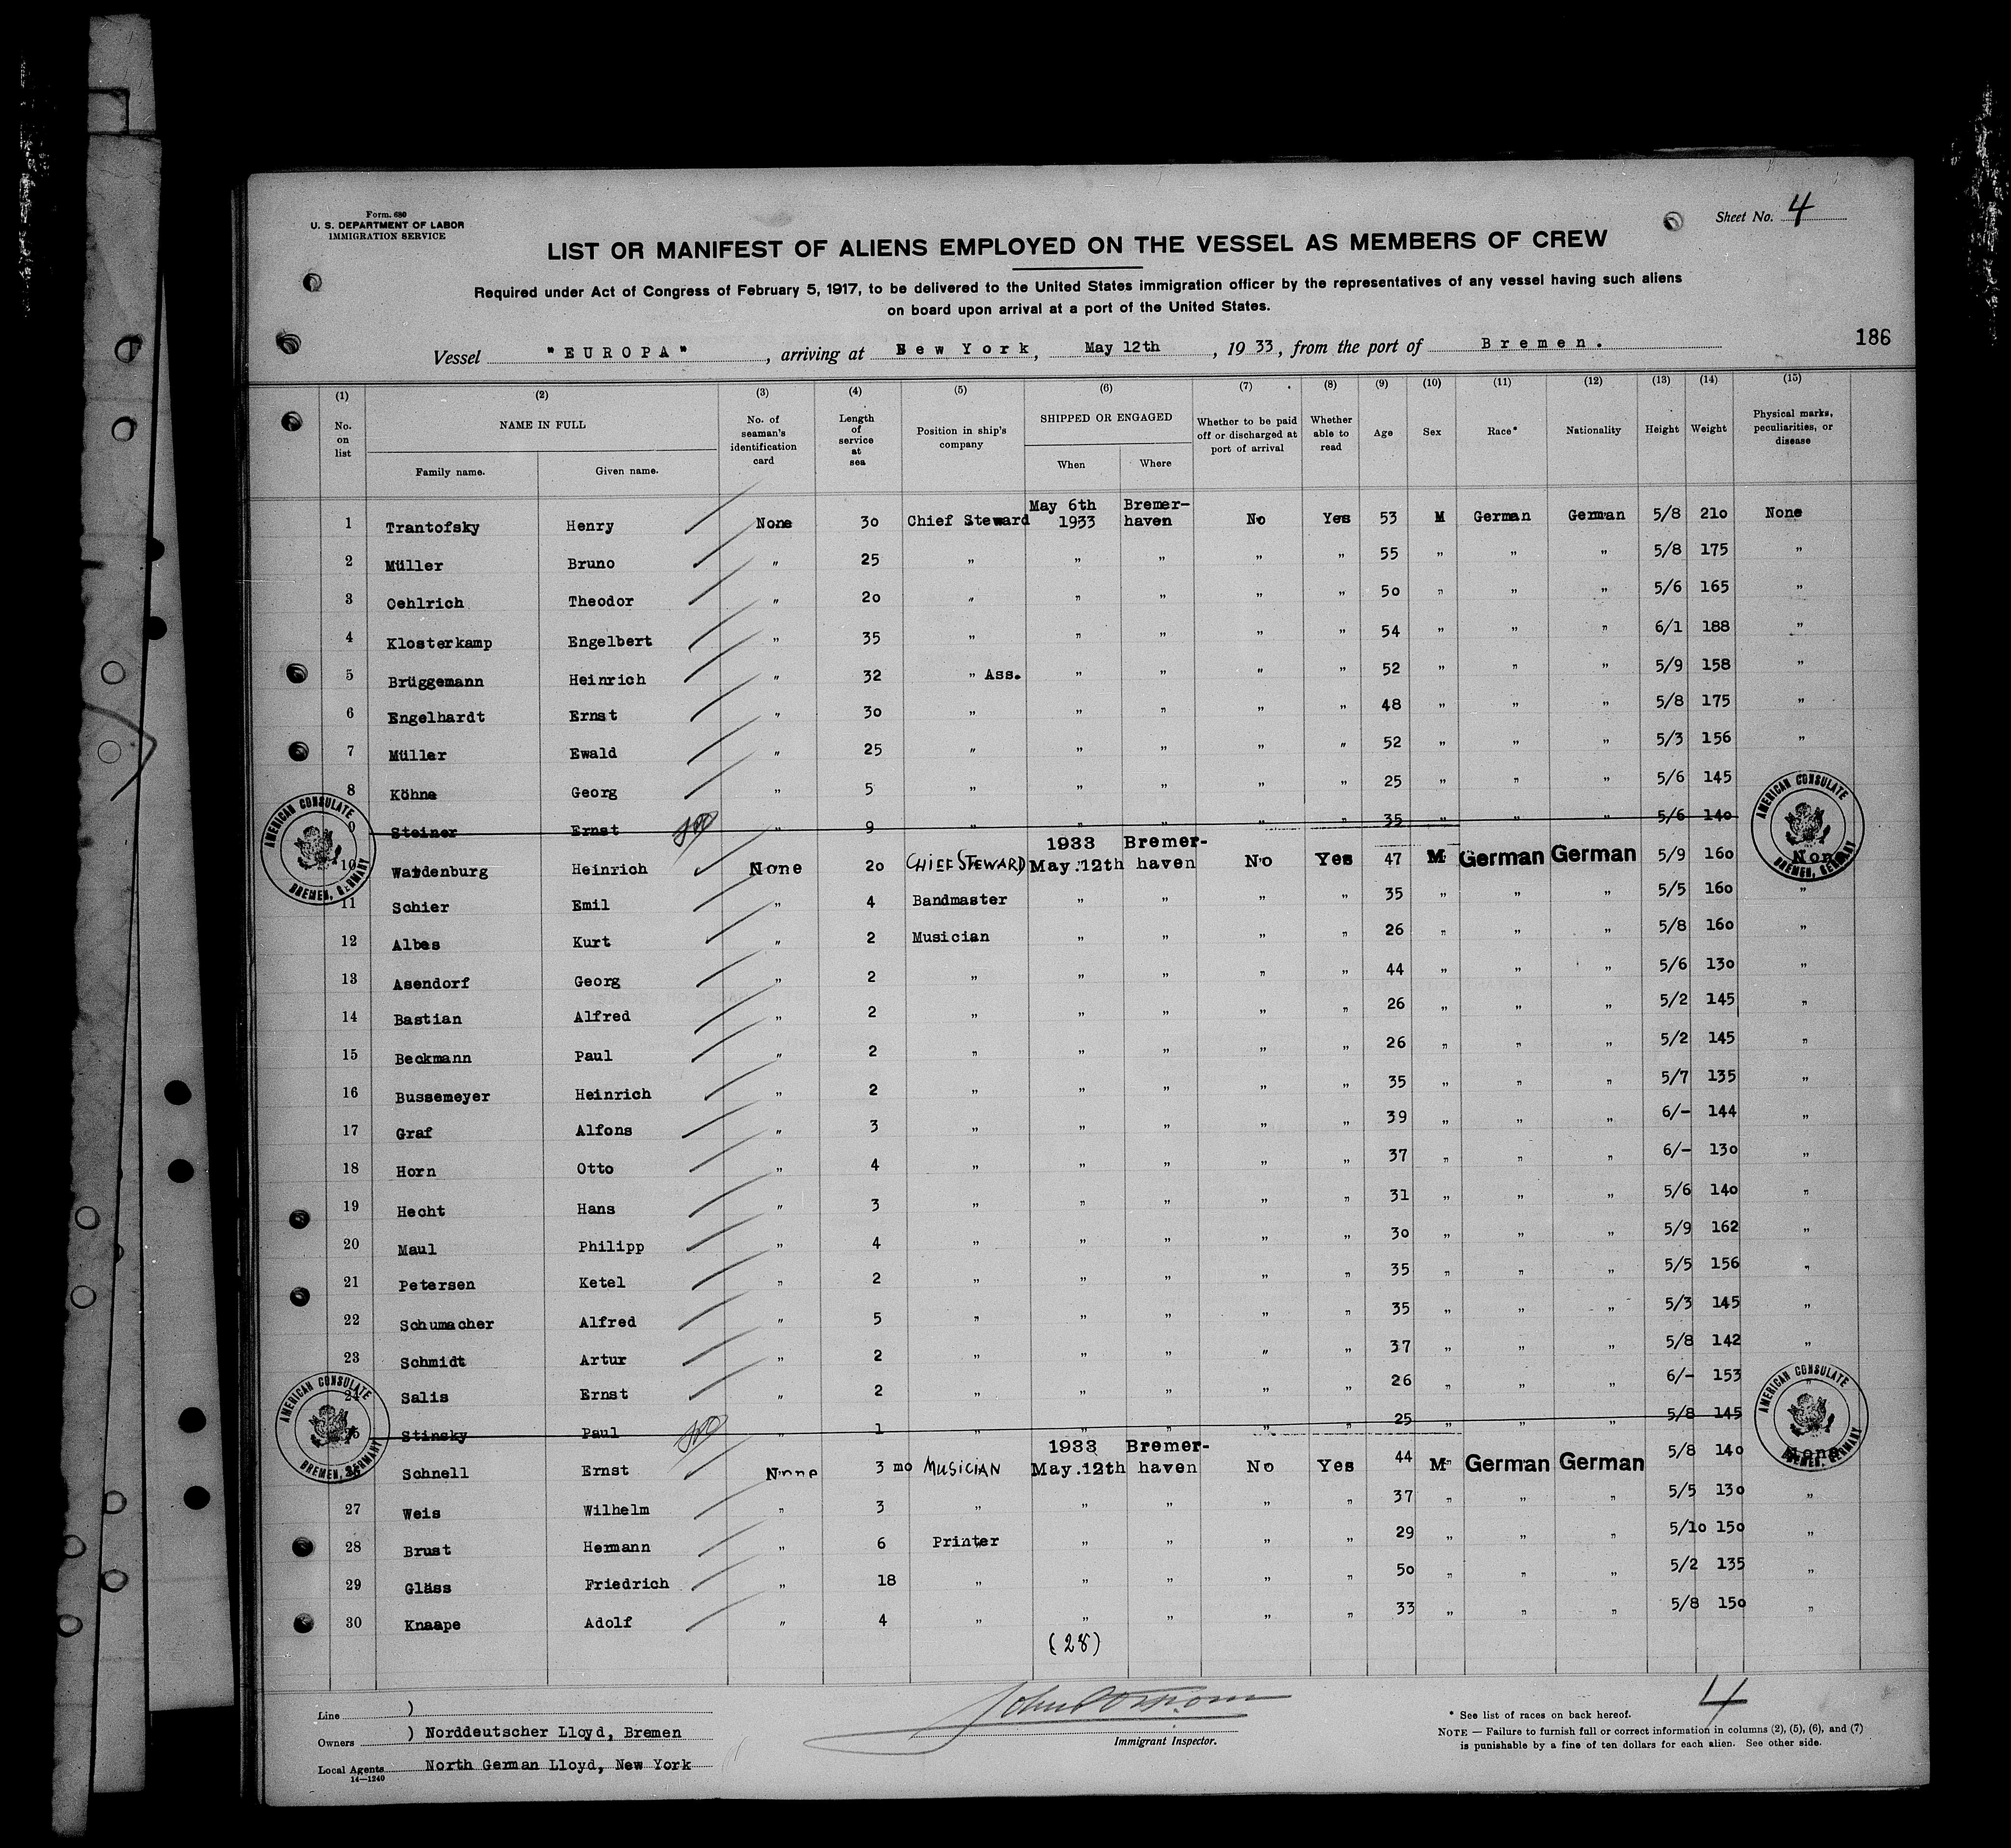 Form. 680
U. S. DEPARTMENT OF LABOR
IMMIGRATION SERVICE
Sheet No. 4
LIST OR MANIFEST OF ALIENS EMPLOYED ON THE VESSEL AS MEMBERS OF CREW
Required under Act of Congress of February 5, 1917, to be delivered to the United States immigration officer by the representatives of any vessel having such aliens
on board upon arrival at a port of the United States.
186
Vessel "EUROPA", arriving at New York, May 12th, 1933, from the port of Bremen.
(1) (2) (3) (4) (5) (6) (7) (8) (9) (10) (11) (12) (13) (14) (15)
No. on list NAME IN FULL Family name. Given name. No. of seaman's identification card Length of service at sea Position in ship's company SHIPPED OR ENGAGED When Where Whether to be paid off or discharged at port of arrival Whether able to read Age Sex Race* Nationality Height Weight Physical marks, peculiarities, or disease
1 Trantofsky Henry None 30 Chief Steward May 6th 1933 Bremerhaven No Yes 53 M German German 5/8 210 None
2 Müller Bruno " 25 " " " " " 55 " " " 5/8 175 "
3 Oehlrich Theodor " 20 " " " " " 50 " " " 5/6 165 "
4 Klosterkamp Engelbert " 35 " " " " " 54 " " " 6/1 188 "
5 Brüggemann Heinrich " 32 " Ass. " " " " 52 " " " 5/9 158 "
6 Engelhardt Ernst " 30 " " " " " 48 " " " 5/8 175 "
7 Müller Ewald " 25 " " " " " 52 " " " 5/3 156 "
8 Köhne Georg " 5 " " " " " 25 " " " 5/6 145 "
9 Steiner Ernst " 9 " " " " " 35 " " " 5/6 140
10 Wardenburg Heinrich None 20 CHIEF STEWARD 1933 May.12th Bremer-haven No Yes 47 M German German 5/9 160 None
11 Schier Emil " 4 Bandmaster " " " " 35 " " " 5/5 160 "
12 Albes Kurt " 2 Musician " " " " 26 " " " 5/8 160 "
13 Asendorf Georg " 2 " " " " " 44 " " " 5/6 130 "
14 Bastian Alfred " 2 " " " " " 26 " " " 5/2 145 "
15 Beckmann Paul " 2 " " " " " 26 " " " 5/2 145 "
16 Bussemeyer Heinrich " 2 " " " " " 35 " " " 5/7 135 "
17 Graf Alfons " 3 " " " " " 39 " " " 6/- 144 "
18 Horn Otto " 4 " " " " " 37 " " " 6/- 130 "
19 Hecht Hans " 3 " " " " " 31 " " " 5/6 140 "
20 Maul Philipp " 4 " " " " " 30 " " " 5/9 162 "
21 Petersen Ketel " 2 " " " " " 35 " " " 5/5 156 "
22 Schumacher Alfred " 5 " " " " " 35 " " " 5/3 145 "
23 Schmidt Artur " 2 " " " " " 37 " " " 5/8 142 "
24 Salis Ernst " 2 " " " " " 26 " " " 6/- 153 "
25 Stinsky Paul " 1 " " " " " 25 " " " 5/8 145
26 Schnell Ernst None 3 mo MUSICIAN 1933 May.12th Bremer-haven No Yes 44 M German German 5/8 140 None
27 Weis Wilhelm " 3 " " " " " 37 " " " 5/5 130 "
28 Brust Hermann " 6 Printer " " " " 29 " " " 5/10 150 "
29 Gläss Friedrich " 18 " " " " " 50 " " " 5/2 135 "
30 Knaape Adolf " 4 " " " " " 33 " " " 5/8 150 "
(28)
AMERICAN CONSULATE BREMEN, GERMANY
AMERICAN CONSULATE BREMEN, GERMANY
AMERICAN CONSULATE BREMEN, GERMANY
AMERICAN CONSULATE BREMEN, GERMANY
4
Line )
Owners ) Norddeutscher Lloyd, Bremen
Local Agents North German Lloyd, New York
14—1240
Immigrant Inspector.
* See list of races on back hereof.
NOTE — Failure to furnish full or correct information in columns (2), (5), (6), and (7)
is punishable by a fine of ten dollars for each alien. See other side.